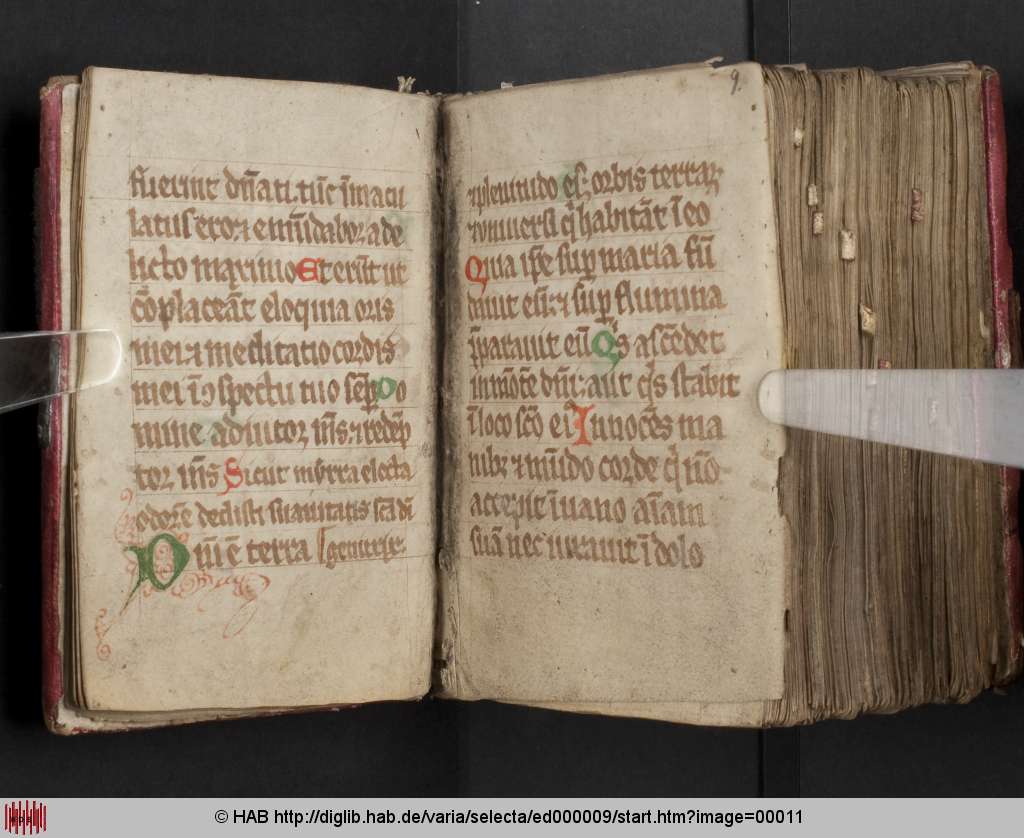 fűerint dn̄ati. tūc īmacu
latus ero: ⁊ emūdabor a de
licto maximo Et erūt ut
cōplaceāt eloquia oris
mei ⁊ meditatio cordis
mei ī ɔspectu tuo sēp̲ Do
mine adiutor m̄s: ⁊ redēp
tor m̄s Sicut mirra electa
odorē dedisti suauitatis sc̄a dī
Dn̄i ē terra Igenitrix.
9.
⁊ plenitudo eiꝰ: orbis terraꝝ
⁊ vniuersi q̄ habitāt ī eo
Quia ip̄e sup̲ maria fū
dauit eū: ⁊ sup̲ flumina
p̄parauit eū Qͥs ascēdet
in mōtē dn̄i: aut qͥs stabit
ī loco sc̄o eiꝰ Innocēs ma
nibꝫ ⁊ mūdo corde q̄ nō
accepit ī uano aīam
suā nec iurauit ī dolo
© HAB http://diglib.hab.de/varia/selecta/ed000009/start.htm?image=00011